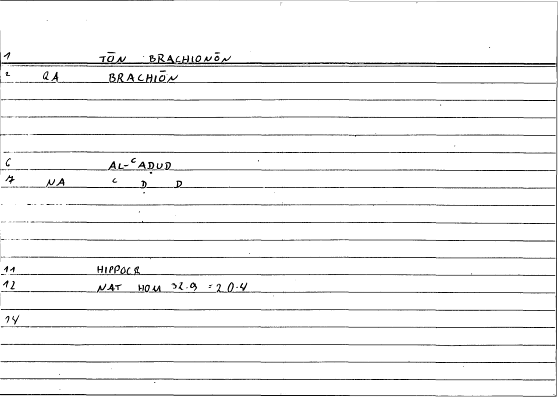 1 TŌN BRACHIONŌN
2 QA BRACHIŌN
6 AL-ʿAḌUD
7 NA ʿ Ḍ D
11 HIPPOCR
12 NAT HOM 32.9 = 20.4
14